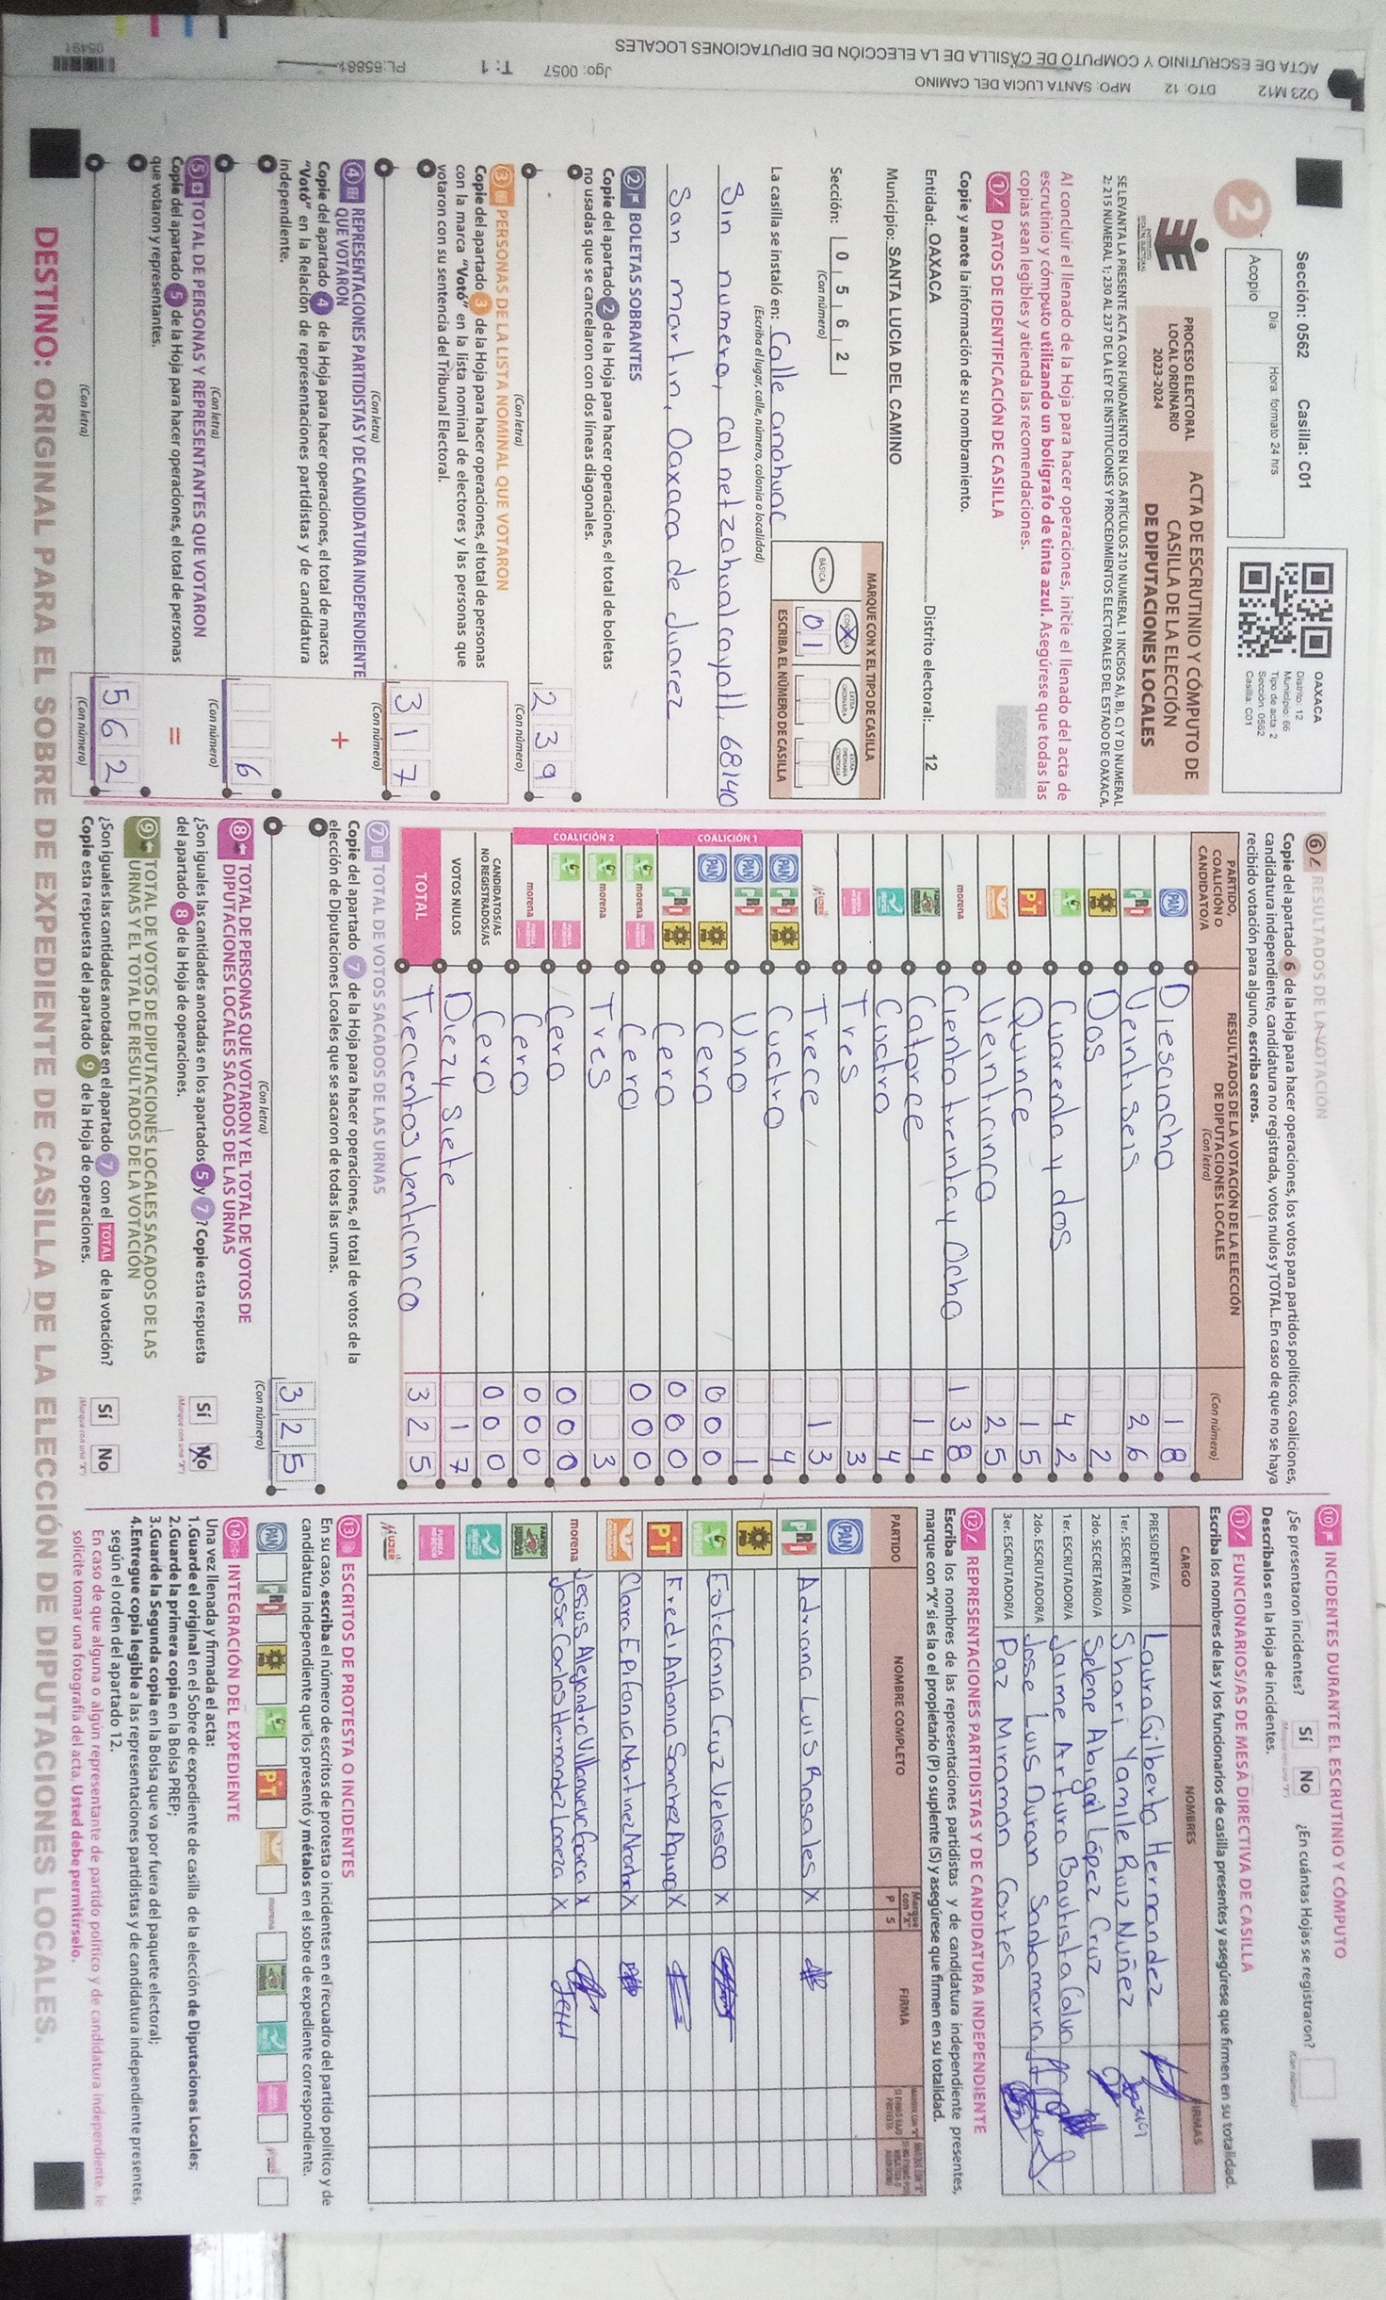 O23 M12 DTO: 12 MPO: SANTA LUCIA DEL CAMINO Jgo: 0057 T: 1 PL:65881
ACTA DE ESCRUTINIO Y CÓMPUTO DE CASILLA DE LA ELECCIÓN DE DIPUTACIONES LOCALES
05491
Sección: 0562 Casilla: C01
2
Acopio
Día: Hora: formato 24 hrs
OAXACA
Distrito: 12
Municipio: 66
Tipo de acta: 2
Sección: 0562
Casilla: C01
PROCESO ELECTORAL
LOCAL ORDINARIO
2023-2024
ACTA DE ESCRUTINIO Y CÓMPUTO DE
CASILLA DE LA ELECCIÓN
DE DIPUTACIONES LOCALES
SE LEVANTA LA PRESENTE ACTA CON FUNDAMENTO EN LOS ARTÍCULOS 210 NUMERAL 1 INCISOS A), B), C) Y D) NUMERAL
2; 215 NUMERAL 1; 230 AL 237 DE LA LEY DE INSTITUCIONES Y PROCEDIMIENTOS ELECTORALES DEL ESTADO DE OAXACA.
Al concluir el llenado de la Hoja para hacer operaciones, inicie el llenado del acta de
escrutinio y cómputo utilizando un bolígrafo de tinta azul. Asegúrese que todas las
copias sean legibles y atienda las recomendaciones.
1 DATOS DE IDENTIFICACIÓN DE CASILLA
Copie y anote la información de su nombramiento.
Entidad: OAXACA Distrito electoral: 12
Municipio: SANTA LUCIA DEL CAMINO
Sección: 0 5 6 2
(Con número)
MARQUE CON X EL TIPO DE CASILLA
BÁSICA X
ESCRIBA EL NÚMERO DE CASILLA
0 1
La casilla se instaló en: Calle anahuac
(Escriba el lugar, calle, número, colonia o localidad)
Sin numero, col netzahualcoyotl, 68140
San martin, Oaxaca de Juarez
2 BOLETAS SOBRANTES
Copie del apartado 2 de la Hoja para hacer operaciones, el total de boletas
no usadas que se cancelaron con dos líneas diagonales.
2 3 9
(Con letra) (Con número)
3 PERSONAS DE LA LISTA NOMINAL QUE VOTARON
Copie del apartado 3 de la Hoja para hacer operaciones, el total de personas
con la marca "Votó" en la lista nominal de electores y las personas que
votaron con su sentencia del Tribunal Electoral.
3 1 7
(Con letra) (Con número)
4 REPRESENTACIONES PARTIDISTAS Y DE CANDIDATURA INDEPENDIENTE
QUE VOTARON
+
Copie del apartado 4 de la Hoja para hacer operaciones, el total de marcas
"Votó" en la Relación de representaciones partidistas y de candidatura
independiente.
6
(Con letra) (Con número)
5 TOTAL DE PERSONAS Y REPRESENTANTES QUE VOTARON
=
Copie del apartado 5 de la Hoja para hacer operaciones, el total de personas
que votaron y representantes.
5 6 2
(Con letra) (Con número)
6 RESULTADOS DE LA VOTACIÓN
Copie del apartado 6 de la Hoja para hacer operaciones, los votos para partidos políticos, coaliciones,
candidatura independiente, candidatura no registrada, votos nulos y TOTAL. En caso de que no se haya
recibido votación para alguno, escriba ceros.
PARTIDO,
COALICIÓN O
CANDIDATO/A
RESULTADOS DE LA VOTACIÓN DE LA ELECCIÓN
DE DIPUTACIONES LOCALES
(Con letra) (Con número)
PAN Diesciocho 1 8
PRI Veintiseis 2 6
PRD Dos 2
Cuarenta y dos 4 2
PT Quince 1 5
Veinticinco 2 5
morena Ciento treinta y Ocho 1 3 8
Catorce 1 4
Cuatro 4
Tres 3
MUJER Trece 1 3
COALICIÓN 1
PAN PRI PRD Cuatro 4
PAN PRI Uno 1
PAN PRD Cero 0 0 0
PRI PRD Cero 0 0 0
COALICIÓN 2
morena Cero 0 0 0
morena Tres 3
Cero 0 0 0
morena Cero 0 0 0
CANDIDATOS/AS
NO REGISTRADOS/AS Cero 0 0 0
VOTOS NULOS Diez y Siete 1 7
TOTAL Trecientos Venticinco 3 2 5
7 TOTAL DE VOTOS SACADOS DE LAS URNAS
Copie del apartado 7 de la Hoja para hacer operaciones, el total de votos de la
elección de Diputaciones Locales que se sacaron de todas las urnas.
3 2 5
(Con letra) (Con número)
8 TOTAL DE PERSONAS QUE VOTARON Y EL TOTAL DE VOTOS DE
DIPUTACIONES LOCALES SACADOS DE LAS URNAS
¿Son iguales las cantidades anotadas en los apartados 5 y 7? Copie esta respuesta
del apartado 8 de la Hoja de operaciones.
Sí No
(Marque con una "X")
9 TOTAL DE VOTOS DE DIPUTACIONES LOCALES SACADOS DE LAS
URNAS Y EL TOTAL DE RESULTADOS DE LA VOTACIÓN
¿Son iguales las cantidades anotadas en el apartado 7 con el TOTAL de la votación?
Copie esta respuesta del apartado 9 de la Hoja de operaciones.
Sí No
(Marque con una "X")
10 INCIDENTES DURANTE EL ESCRUTINIO Y CÓMPUTO
¿Se presentaron incidentes? Sí No ¿En cuántas Hojas se registraron?
(Marque con una "X") (Con número)
Descríbalos en la Hoja de incidentes.
11 FUNCIONARIOS/AS DE MESA DIRECTIVA DE CASILLA
Escriba los nombres de las y los funcionarios de casilla presentes y asegúrese que firmen en su totalidad.
CARGO NOMBRES FIRMAS
PRESIDENTE/A Laura Gilberto Hernandez
1er. SECRETARIO/A Shari Yamile Ruiz Nuñez
2do. SECRETARIO/A Selene Abigail López Cruz
1er. ESCRUTADOR/A Jaime Arturo Bautista Calvo
2do. ESCRUTADOR/A Jose Luis Duran Santamaria
3er. ESCRUTADOR/A Paz Miramon Cortes
12 REPRESENTACIONES PARTIDISTAS Y DE CANDIDATURA INDEPENDIENTE
Escriba los nombres de las representaciones partidistas y de candidatura independiente presentes,
marque con "X" si es la o el propietario (P) o suplente (S) y asegúrese que firmen en su totalidad.
PARTIDO NOMBRE COMPLETO Marque con "X" P S FIRMA
PAN
PRI Adriana Luis Rosales X
PRD
Cruz Velasco X
PT Fredi Antonio Sanchez X
Clara Epifania Martinez X
morena Jesus Alejandro Villanueva X
Jose Carlos Hernandez X
MUJER
13 ESCRITOS DE PROTESTA O INCIDENTES
En su caso, escriba el número de escritos de protesta o incidentes en el recuadro del partido político y de
candidatura independiente que los presentó y métalos en el sobre de expediente correspondiente.
PAN PRI PRD PT morena
14 INTEGRACIÓN DEL EXPEDIENTE
Una vez llenada y firmada el acta:
1.Guarde el original en el Sobre de expediente de casilla de la elección de Diputaciones Locales;
2.Guarde la primera copia en la Bolsa PREP;
3.Guarde la Segunda copia en la Bolsa que va por fuera del paquete electoral;
4.Entregue copia legible a las representaciones partidistas y de candidatura independiente presentes,
según el orden del apartado 12.
En caso de que alguna o algún representante de partido político y de candidatura independiente, le
solicite tomar una fotografía del acta, Usted debe permitírselo.
DESTINO: ORIGINAL PARA EL SOBRE DE EXPEDIENTE DE CASILLA DE LA ELECCIÓN DE DIPUTACIONES LOCALES.